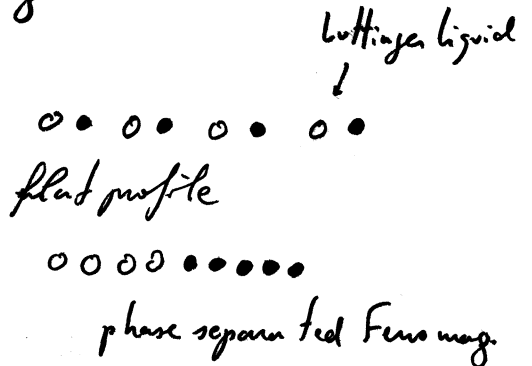 Luttinger Liquid
flat profile
phase separated Ferromag.